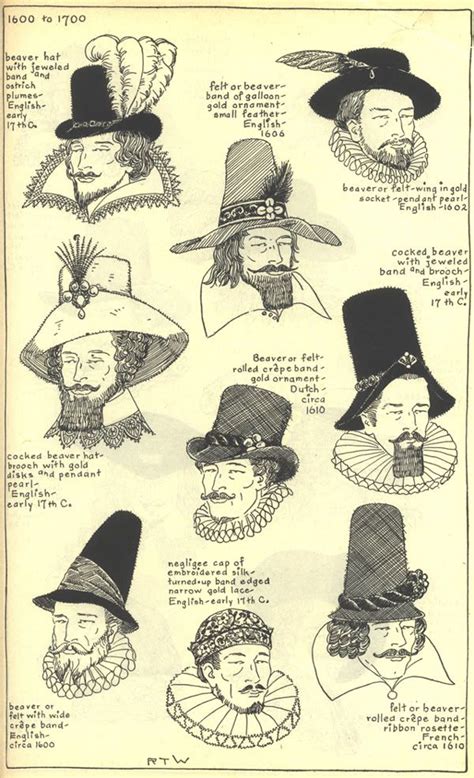 1600 to 1700
beaver hat
with jeweled
band and
ostrich
plumes-
English-
early
17th C.
felt or beaver-
band of galloon-
gold ornament-
small feather-
English-
1606
beaver or felt-wing in gold
socket-pendant pearl-
English-1602
cocked beaver
with jeweled
band and brooch-
English-
early
17th C.
Beaver or felt-
rolled crêpe band-
gold ornament-
Dutch-
circa
1610
cocked beaver hat-
brooch with gold
disks and pendant
pearl-
English-
early 17th C.
negligee cap of
embroidered silk-
turned-up band edged
narrow gold lace-
English-early 17th C.
beaver or
felt with wide
crêpe band-
English-
circa 1600
felt or beaver-
rolled crêpe band-
ribbon rosette-
French-
circa 1610
RTW